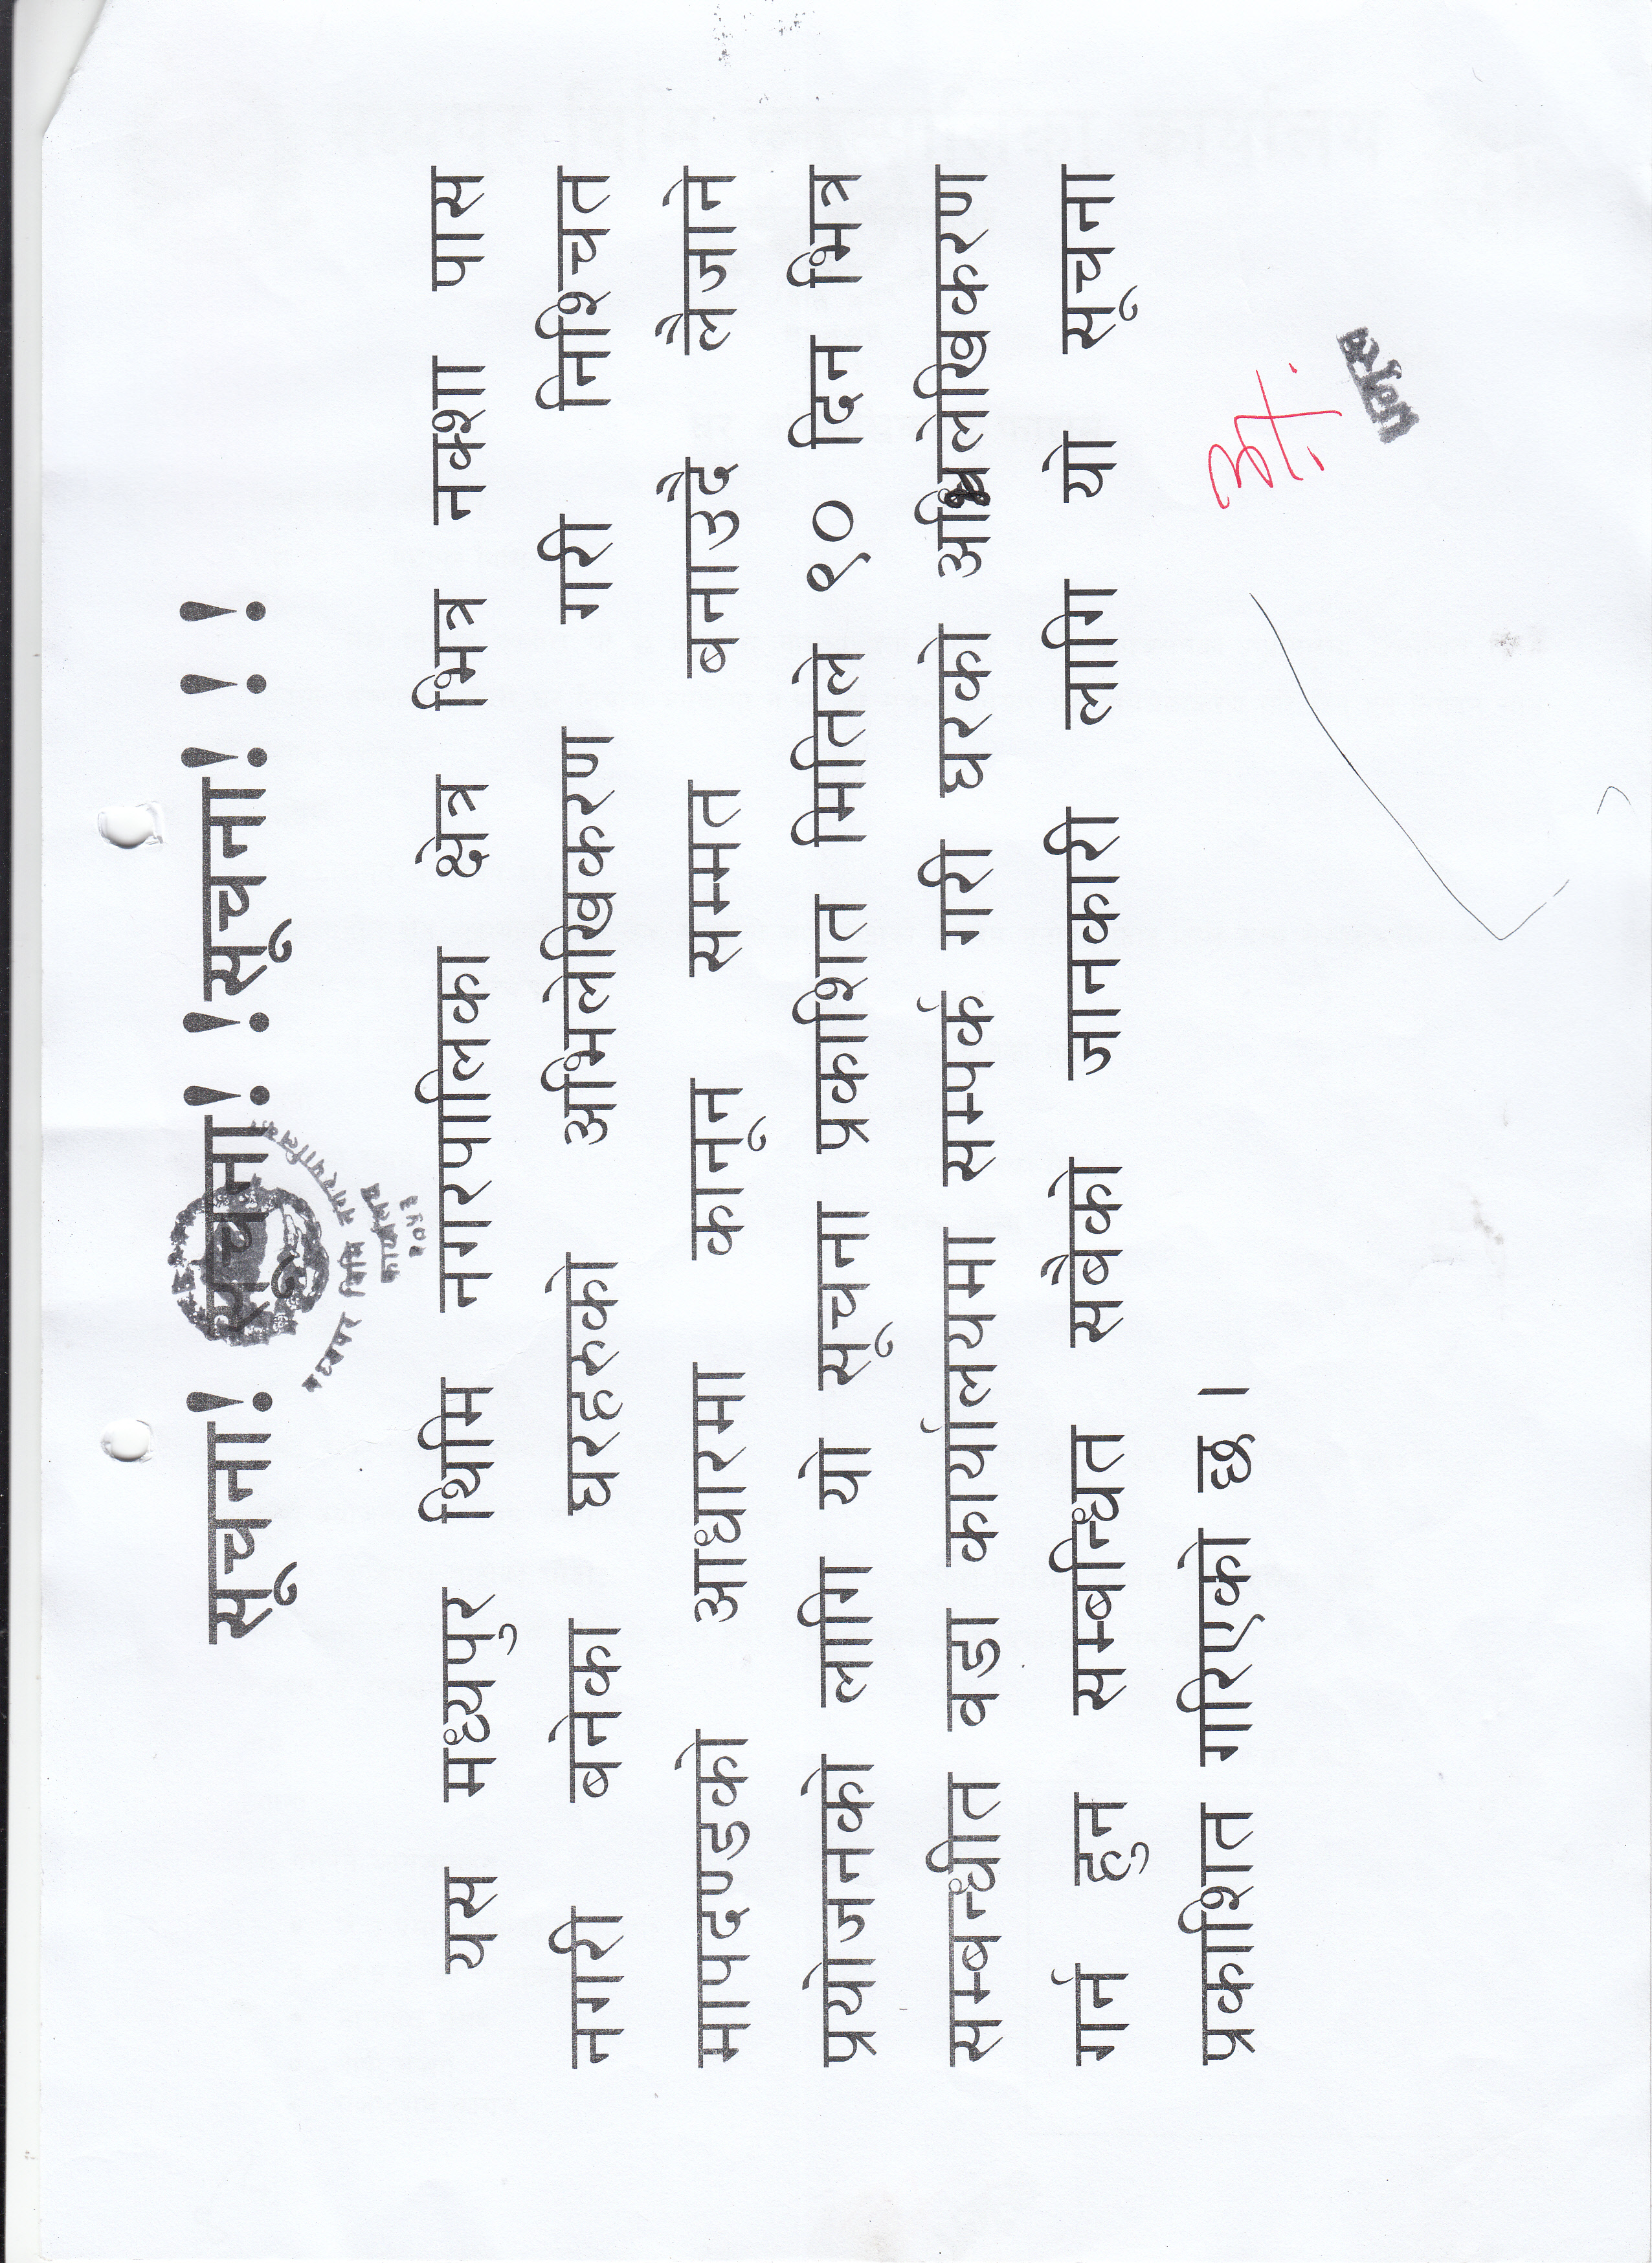 सूचना! सूचना! !सूचना! ! !
मध्यपुर थिमि नगरपालिका
यस मध्यपुर थिमि नगरपालिका क्षेत्र भित्र नक्शा पास
नगरी बनेका घरहरुको अभिलेखिकरण गरी निश्चित
मापदण्डको आधारमा कानून सम्मत बनाउदै लैजाने
प्रयोजनको लागि यो सूचना प्रकाशित मितिले ९० दिन भित्र
सम्बन्धीत वडा कार्यालयमा सम्पर्क गरी घरको अभिलेखिकरण
गर्न हुन सम्बन्धित सबैको जानकारी लागि यो सूचना
प्रकाशित गरिएको छ ।